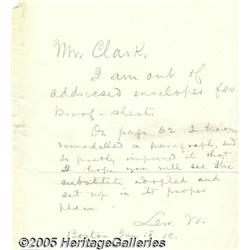 Mr. Clark.
I am out of
addressed envelopes for
proof-sheets
On page 62 I have
remodelled a paragraph, and
so greatly improved it that
I hope you will see the
substitute adopted and
set up in its proper
place.
Lew. W.
Boston Jan 18, 80.
©2005 HeritageGalleries